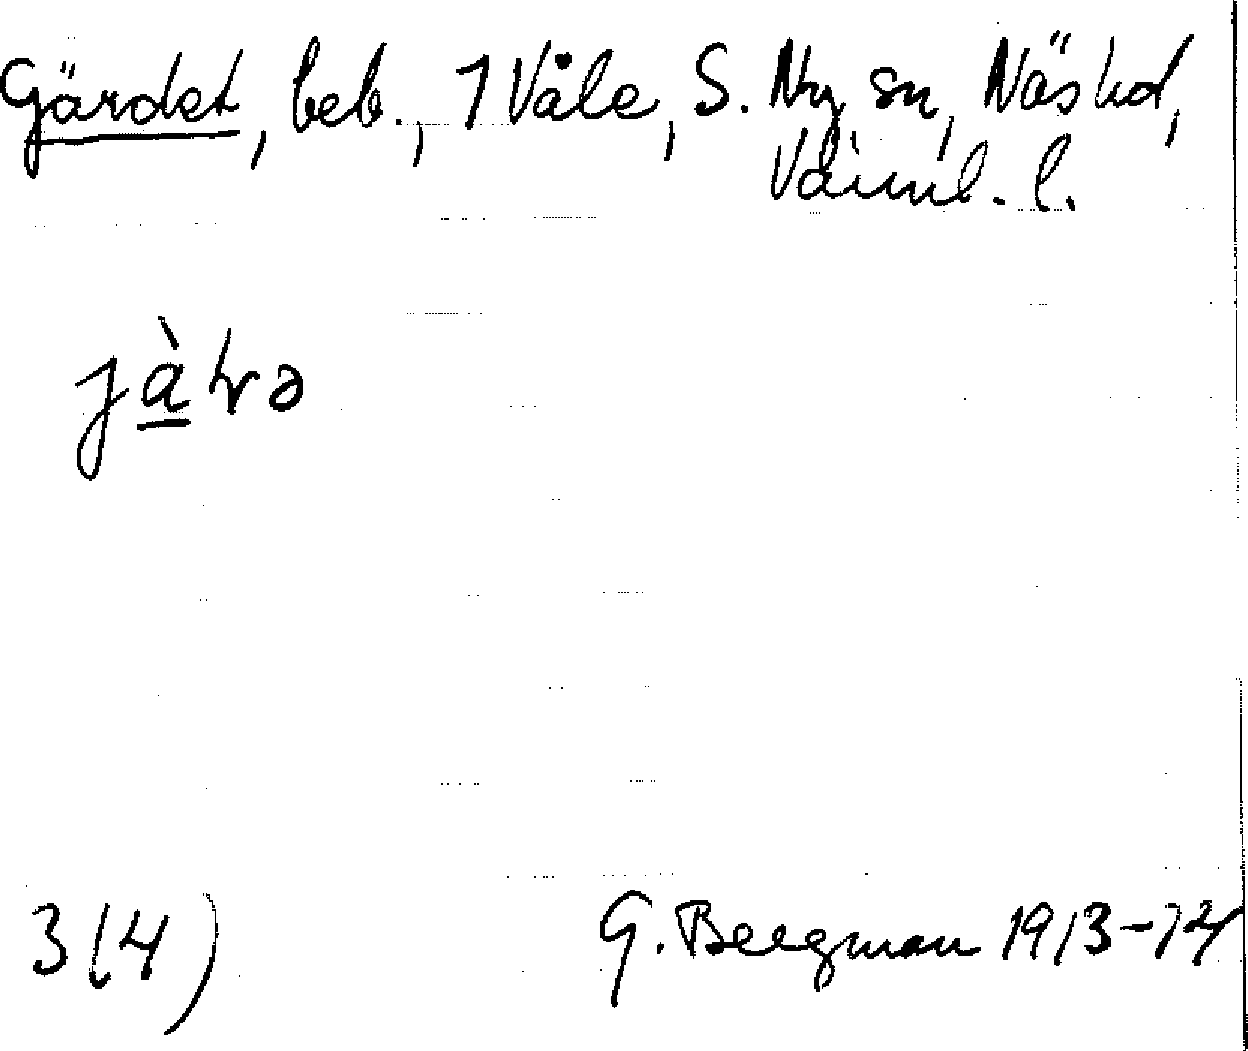 Gärdet, beb., 1 Våle, S. Ny sn, Näs hd,
Värml. l.
3(4) G. Bergman 1913-14